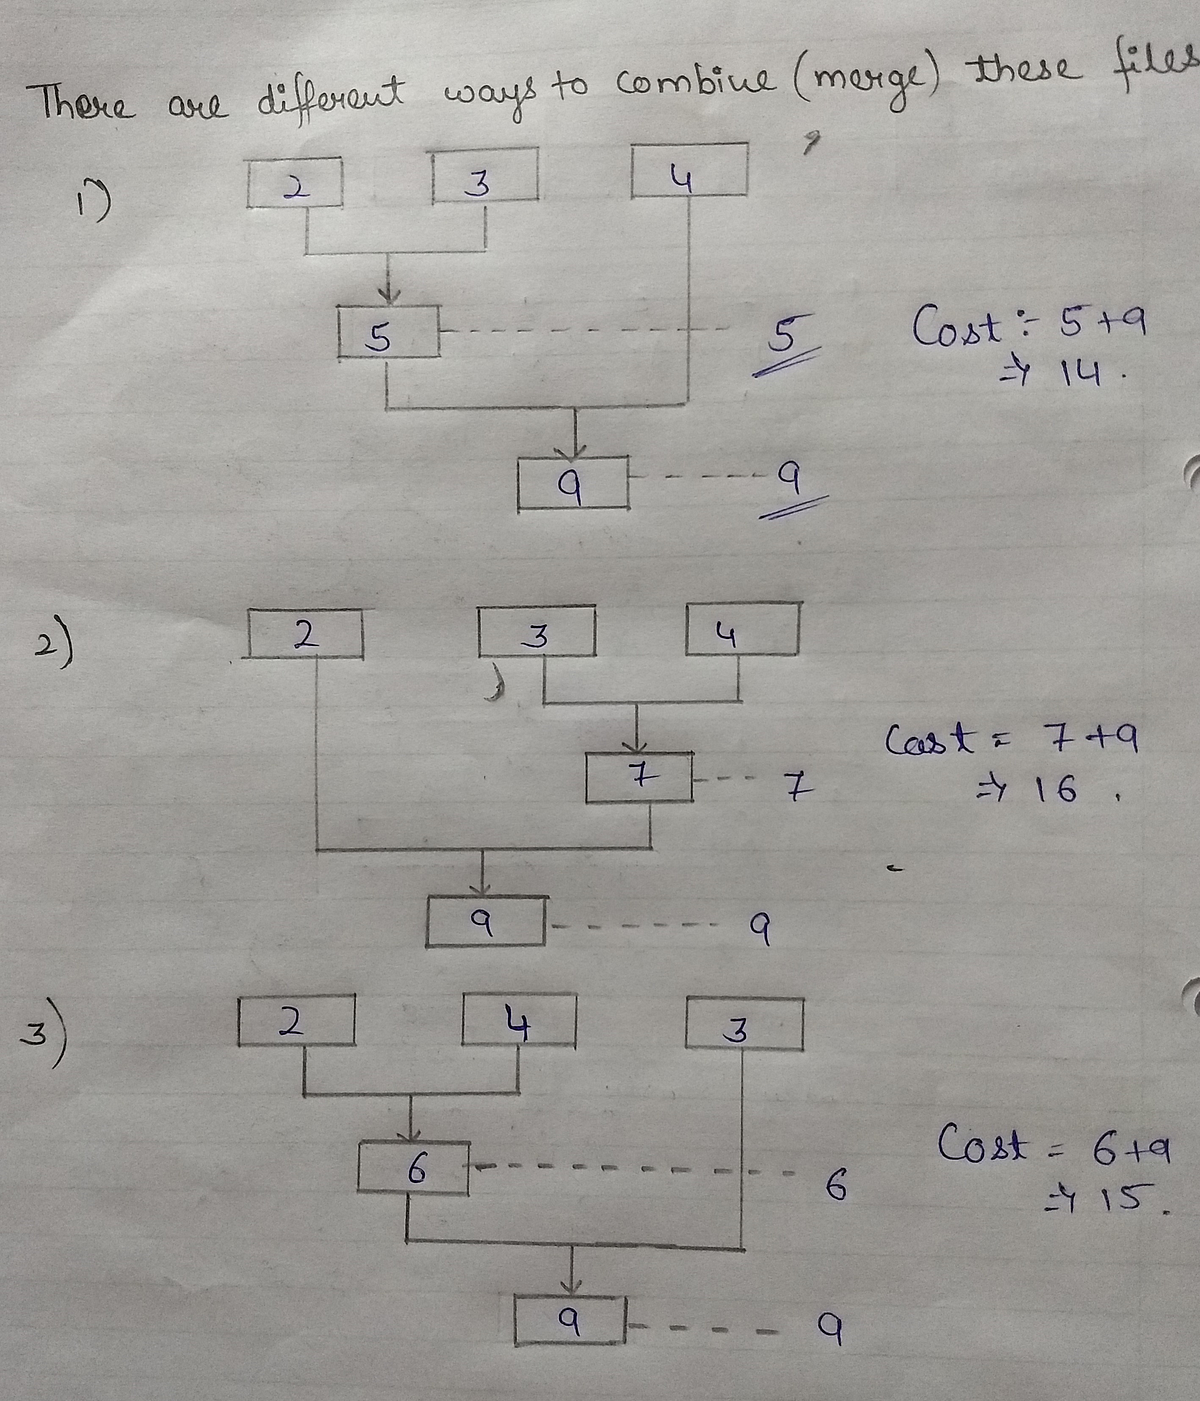 There are different ways to combine (merge) these files
1)
2 3 4
5 5 Cost :- 5+9
⇒ 14 .
9 9
2)
2 3 4
Cost = 7+9
7 7 ⇒ 16 .
9 9
3)
2 4 3
Cost = 6+9
6 6 ⇒ 15 .
9 9